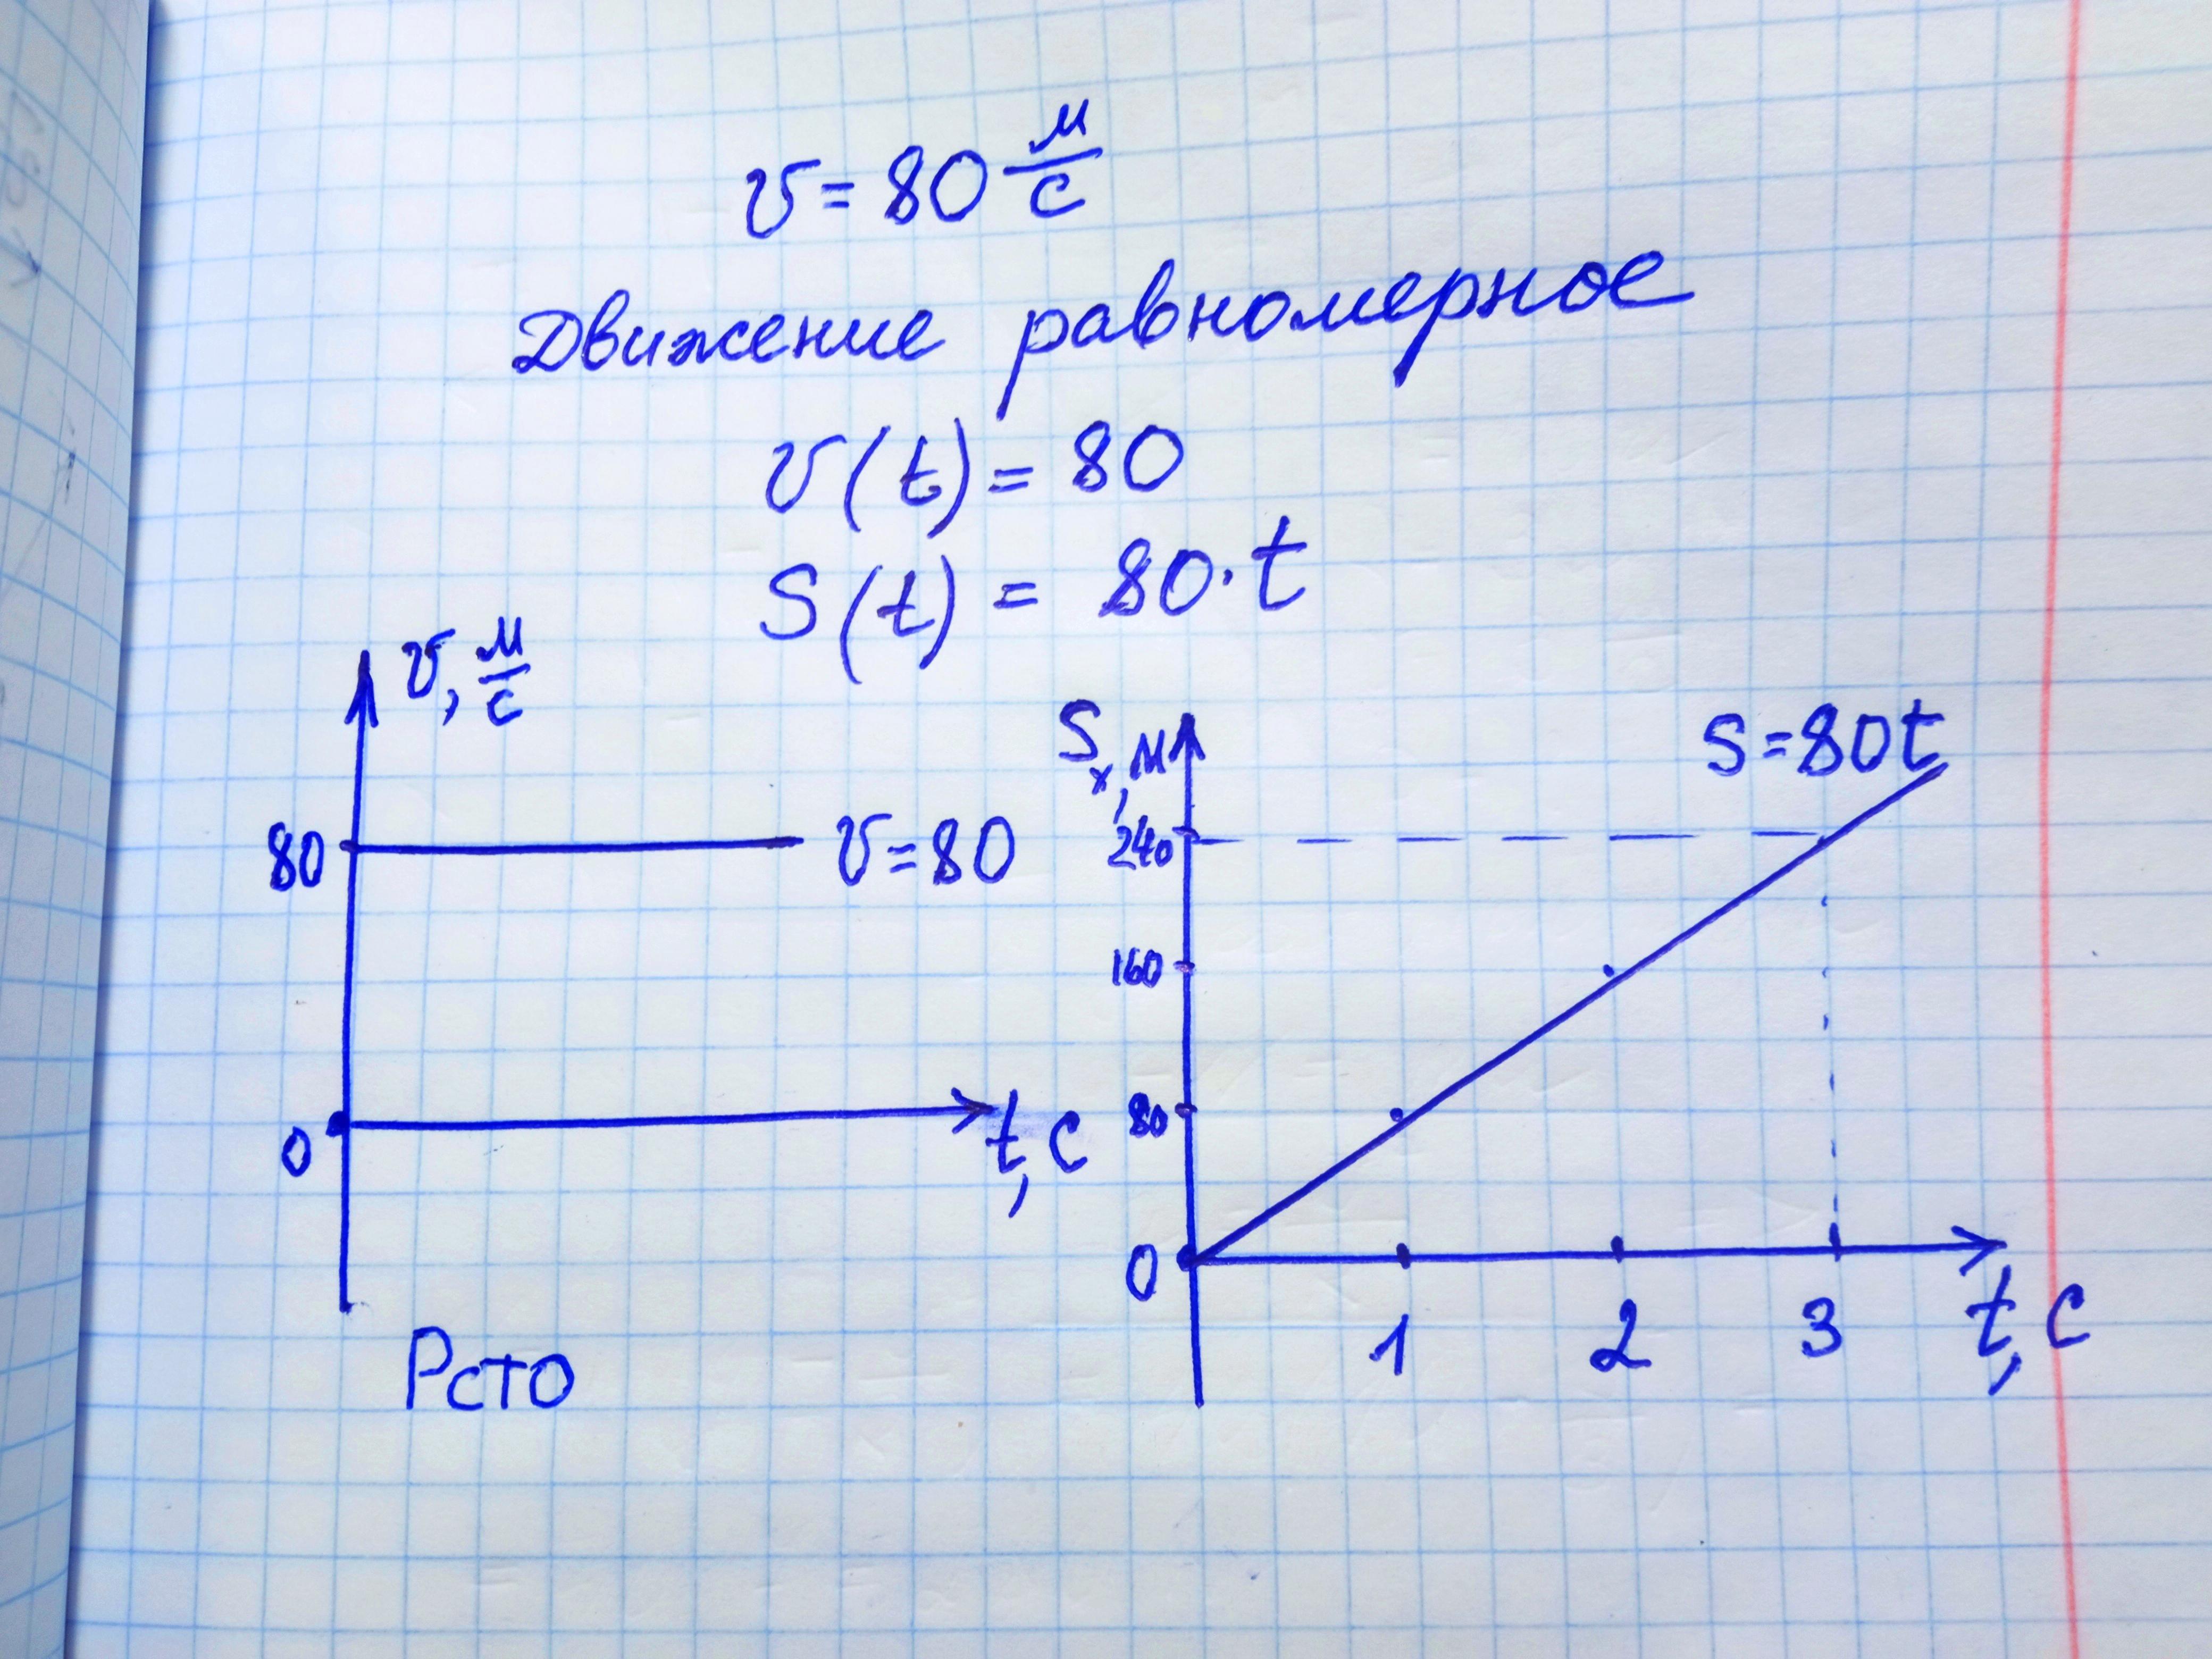 v = 80 м/с
Движение равномерное
v(t) = 80
S(t) = 80·t
v, м/с
80
v = 80
0
t, с
Sx, м
S = 80t
240
160
80
0
1 2 3
t, с
Рсто